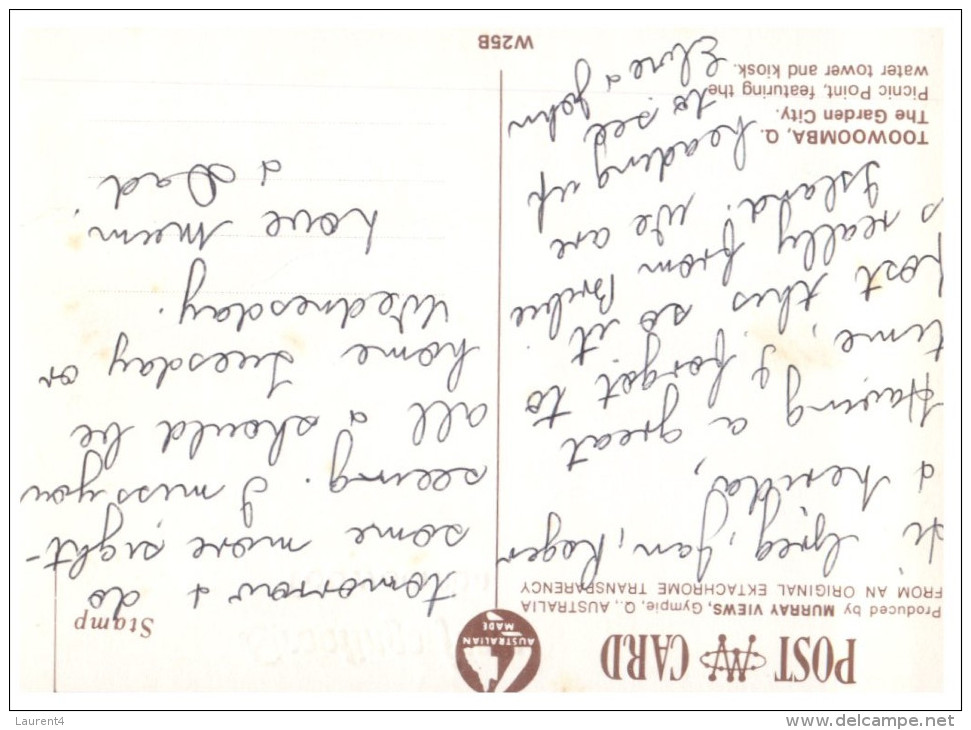 POST CARD
AUSTRALIAN MADE
Stamp
Produced by MURRAY VIEWS, Gympie, Q., AUSTRALIA
FROM AN ORIGINAL EKTACHROME TRANSPARENCY
Hi Greg, Jan, Roger
&
Having a great
time, I forgot to
post this so it
s really from Bribie
Island. We are
heading up
to see
& John
TOOWOOMBA, Q.
The Garden City.
Picnic Point, featuring the
water tower and kiosk.
W25B
tomorrow & do
some more sight-
seeing. I miss you
all & should be
home Tuesday or
Wednesday.
Love Mum
& Dad
Laurent4
www.delcampe.net